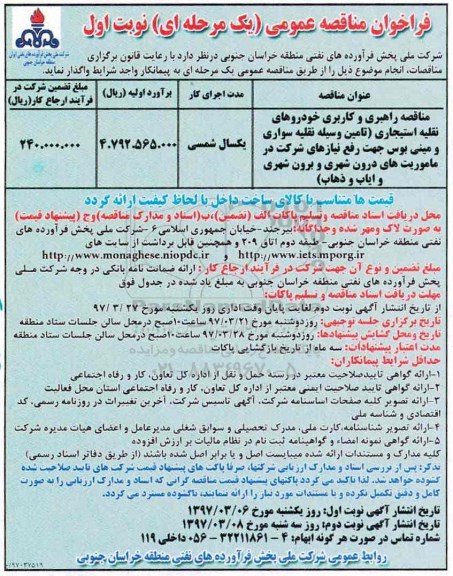 فراخوان مناقصه عمومی (یک مرحله ای) نوبت اول
شرکت ملی پخش فرآورده های نفتی ایران
منطقه خراسان جنوبی
شرکت ملی پخش فرآورده های نفتی منطقه خراسان جنوبی درنظر دارد با رعایت قانون برگزاری
مناقصات، انجام موضوع ذیل را از طریق مناقصه عمومی یک مرحله ای به پیمانکار واجد شرایط واگذار نماید.
عنوان مناقصه
مدت اجرای کار
برآورد اولیه (ریال)
مبلغ تضمین شرکت در
فرآیند ارجاع کار(ریال)
مناقصه راهبری و کاربری خودروهای
نقلیه استیجاری (تامین وسیله نقلیه سواری
و مینی بوس جهت رفع نیازهای شرکت در
ماموریت های درون شهری و برون شهری
و ایاب و ذهاب)
یکسال شمسی
۴.۷۹۲.۵۶۵.۰۰۰
۲۴۰.۰۰۰.۰۰۰
قیمت ها متناسب با کالای ساخت داخل با لحاظ کیفیت ارائه گردد
محل دریافت اسناد مناقصه وتسلیم پاکات الف (تضمین)،ب(اسناد و مدارک مناقصه)وج (پیشنهاد قیمت)
به صورت لاک ومهر شده وجداگانه:بیرجند-خیابان جمهوری اسلامی۶ -شرکت ملی پخش فرآورده های
نفتی منطقه خراسان جنوبی - طبقه دوم اتاق ۲۰۹ و همچنین قابل برداشت از سایت های
http://www.iets.mporg.ir و http://www.monaghese.niopdc.ir
مبلغ تضمین و نوع آن جهت شرکت در فرآیند ارجاع کار : ارائه ضمانت نامه بانکی در وجه شرکت ملی
پخش فرآورده های نفتی منطقه خراسان جنوبی به مبلغ یاد شده در جدول فوق
مهلت دریافت اسناد مناقصه و تسلیم پاکات:
از تاریخ انتشار آگهی نوبت دوم لغایت پایان وقت اداری روز یکشنبه مورخ ۲۷ /۳ /۹۷
تاریخ برگزاری جلسه توجیهی: روزدوشنبه مورخ ۹۷/۰۳/۲۱ ساعت۱۰صبح درمحل سالن جلسات ستاد منطقه
تاریخ ومحل گشایش پیشنهادها: روزدوشنبه مورخ ۹۷/۰۳/۲۸ ساعت۱۰صبح درمحل سالن جلسات ستاد منطقه
مدت اعتبار پیشنهادات: سه ماه از تاریخ بازگشایی پاکات
حداقل شرایط پیمانکاران:
۱-ارائه گواهی تاییدصلاحیت معتبر در رسته حمل و نقل از اداره کل تعاون، کار و رفاه اجتماعی
۲-ارائه گواهی تایید صلاحیت ایمنی معتبر از اداره کل تعاون، کار و رفاه اجتماعی استان محل فعالیت
۳-ارائه تصویر کلیه صفحات اساسنامه شرکت، آگهی تاسیس شرکت، آخرین تغییرات در روزنامه رسمی، کد
اقتصادی و شناسه ملی
۴-ارائه تصویر شناسنامه،کارت ملی، مدرک تحصیلی و سوابق شغلی مدیرعامل و اعضای هیات مدیره شرکت
۵-ارائه گواهی نمونه امضاء و گواهینامه ثبت نام در نظام مالیات بر ارزش افزوده
کلیه مدارک و مستندات ارائه شده میبایست اصل و یا برابر اصل شده باشند (از طریق دفاتر اسناد رسمی)
تذکر: پس از بررسی اسناد و مدارک ارزیابی شرکتها، صرفا پاکت های پیشنهاد قیمت شرکت های تایید صلاحیت شده
گشوده خواهد شد. لذا تاکید می گردد پاکتهای پیشنهاد قیمت مناقصه گرانی که اسناد و مدارک ارزیابی را به صورت
کامل و دقیق تکمیل نکرده و یا مستندات مورد نیاز را ارائه ننمایند، ناگشوده مسترد می گردد.
تاریخ انتشار آگهی نوبت اول: روز یکشنبه مورخ ۱۳۹۷/۰۳/۰۶
تاریخ انتشار آگهی نوبت دوم: روز سه شنبه مورخ ۱۳۹۷/۰۳/۰۸
شماره تماس در صورت هر گونه ابهام: ۴ - ۳۲۲۱۱۸۶۱ - ۰۵۶ داخلی ۱۱۹
روابط عمومی شرکت ملی پخش فرآورده های نفتی منطقه خراسان جنوبی